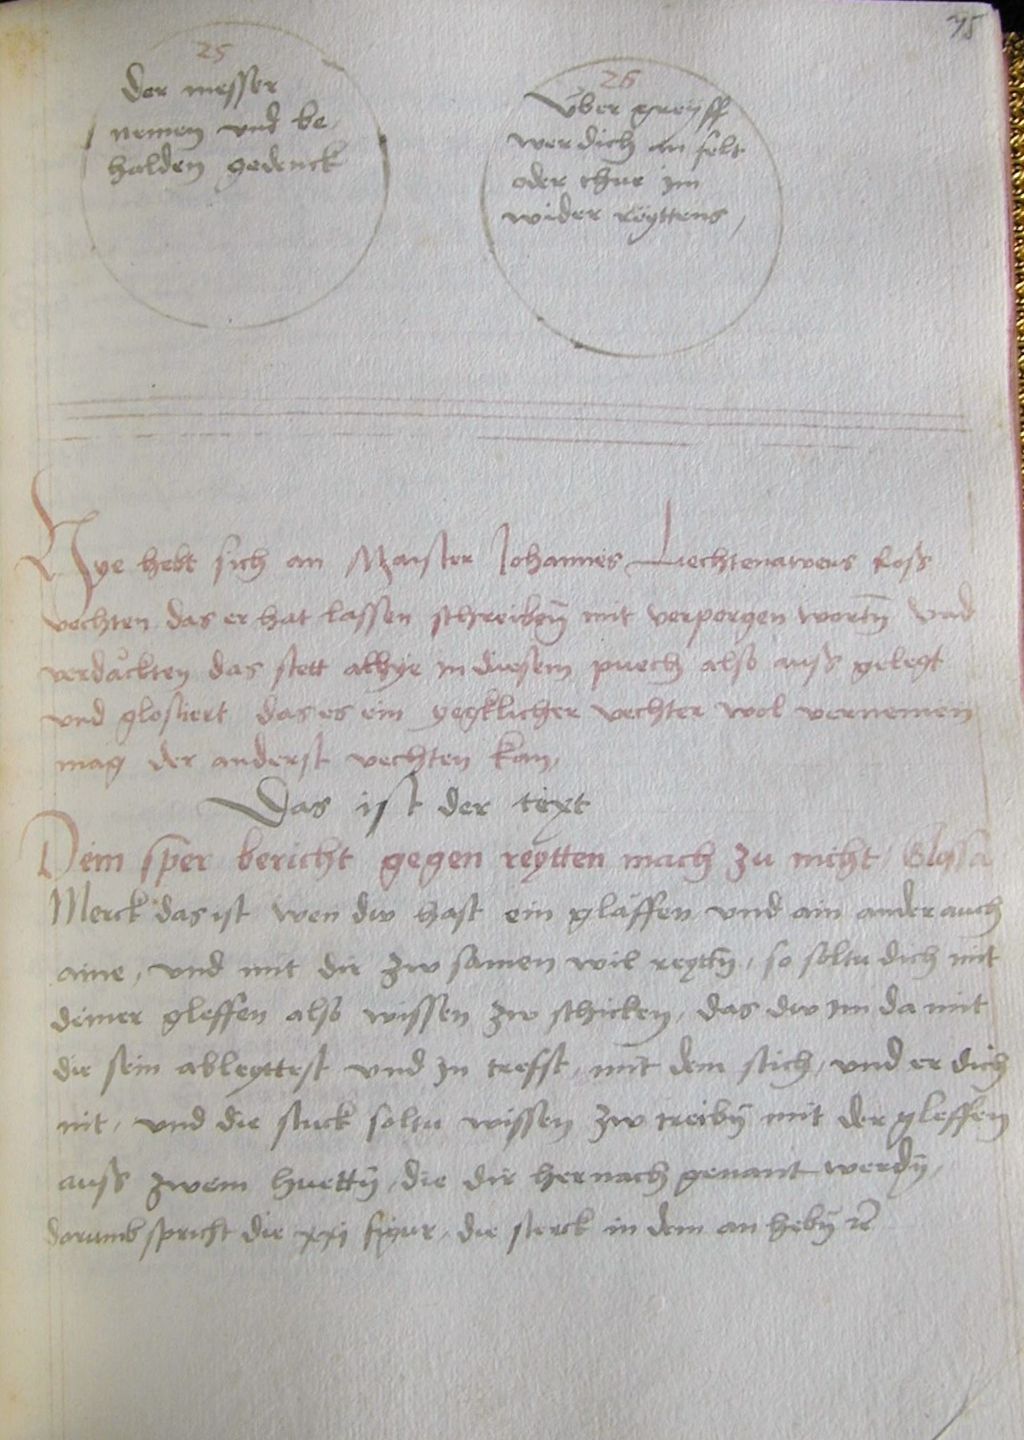 75
25
Der messer
nemen vnd be
halden gedenck
26
Vber greyff
wer dich an felt
oder thue im
wider reyttens,
Hye hebt sich an Maister Johannes Liechtenawers Ross
vechten das er hat lassen schreibñ mit verporgen wortñ vnd
verdäckten das stett alhye in diesem puech also auss gelegt
vnd glosiert das es ein yegklicher vechter wol vernemen
mag der anderst vechten kan,
Das ist der text
Dein sper bericht gegen reytten mach zu nicht Glosa
Merck das ist wen dw hast ein gläffen vnd ain ander auch
aine, vnd mit dir zw samen wil reyttñ, so soltu dich mit
deiner gleffen also wissen zw schicken, das dw im da mit
die sein ableyttest vnd in treffst, mit dem stich, vnd er dich
nit, vnd die stuck soltu wissen zw treibñ mit der gleffen
auss zwein huettñ, die dir hernach genant werdñ,
darumb spricht die xxj figur, die sterck in dem an hebñ rc̄